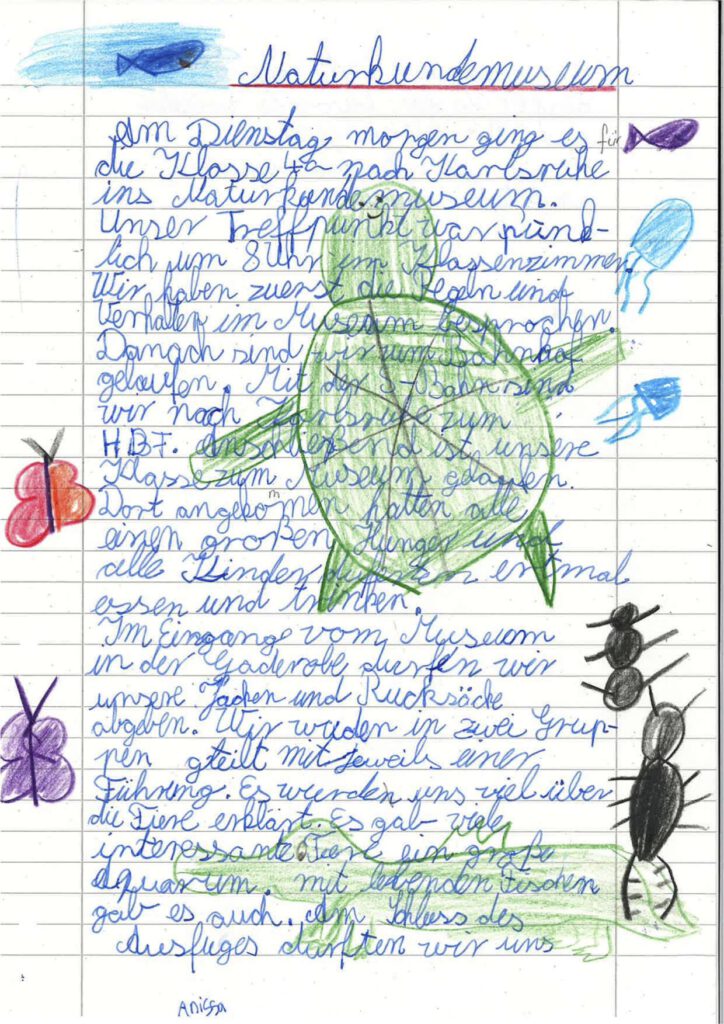 Naturkundemuseum
Am Dienstag morgen ging es für
die Klasse 4a nach Karlsruhe
ins Naturkundemuseum.
Unser Treffpunkt war pünd-
lich um 8 Uhr im Klassenzimmer.
Wir haben zuerst die Regeln und
Verhalten im Museum besprochen.
Danach sind wir zum Bahnhof
gelaufen. Mit der S-Bahn sind
wir nach Karlsruhe zum
HBF. Anschließend ist unsere
Klasse zum Museum gelaufen.
Dort angekommen hatten alle
einen großen Hunger und
alle Kinder erstmal
essen und trinken.
Im Eingang vom Museum
in der Gaderobe durfen wir
unsere Jacken und Rucksäcke
abgeben. Wir wuden in zwei Grup-
pen gteilt mit jeweils einer
Führung. Es wurden uns viel über
die Tiere erklärt. Es gab viele
interessante Tiere ein große
Aquarum. mit lebenden Fischen
gab es auch. Am Schluss des
Ausfluges durften wir uns
Anissa